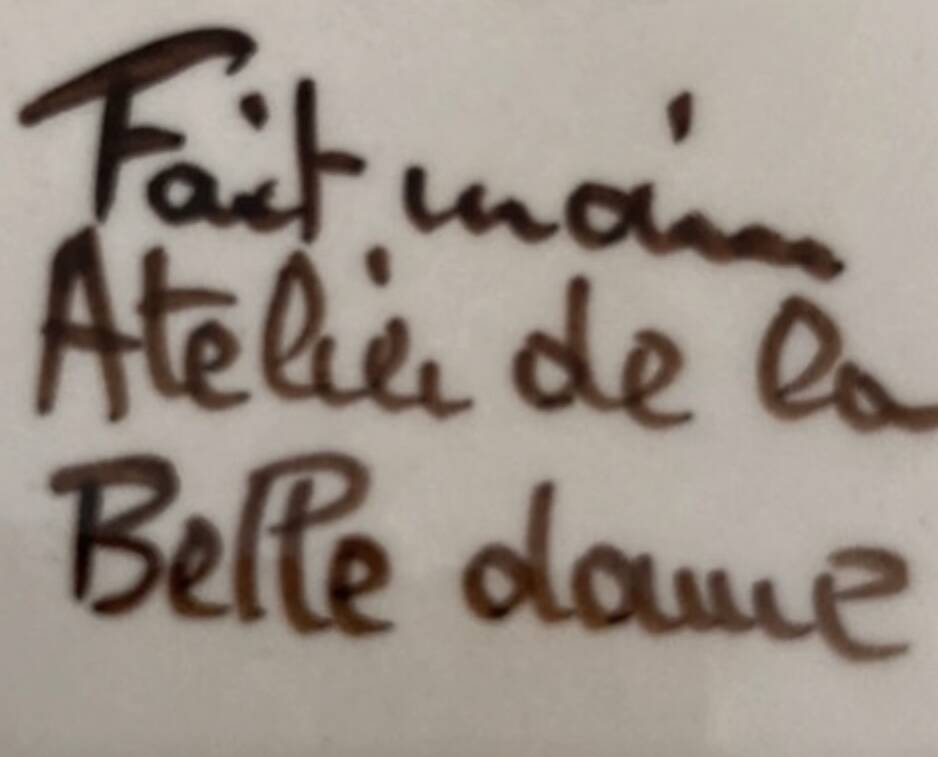 Fait main
Atelier de la
Belle dame